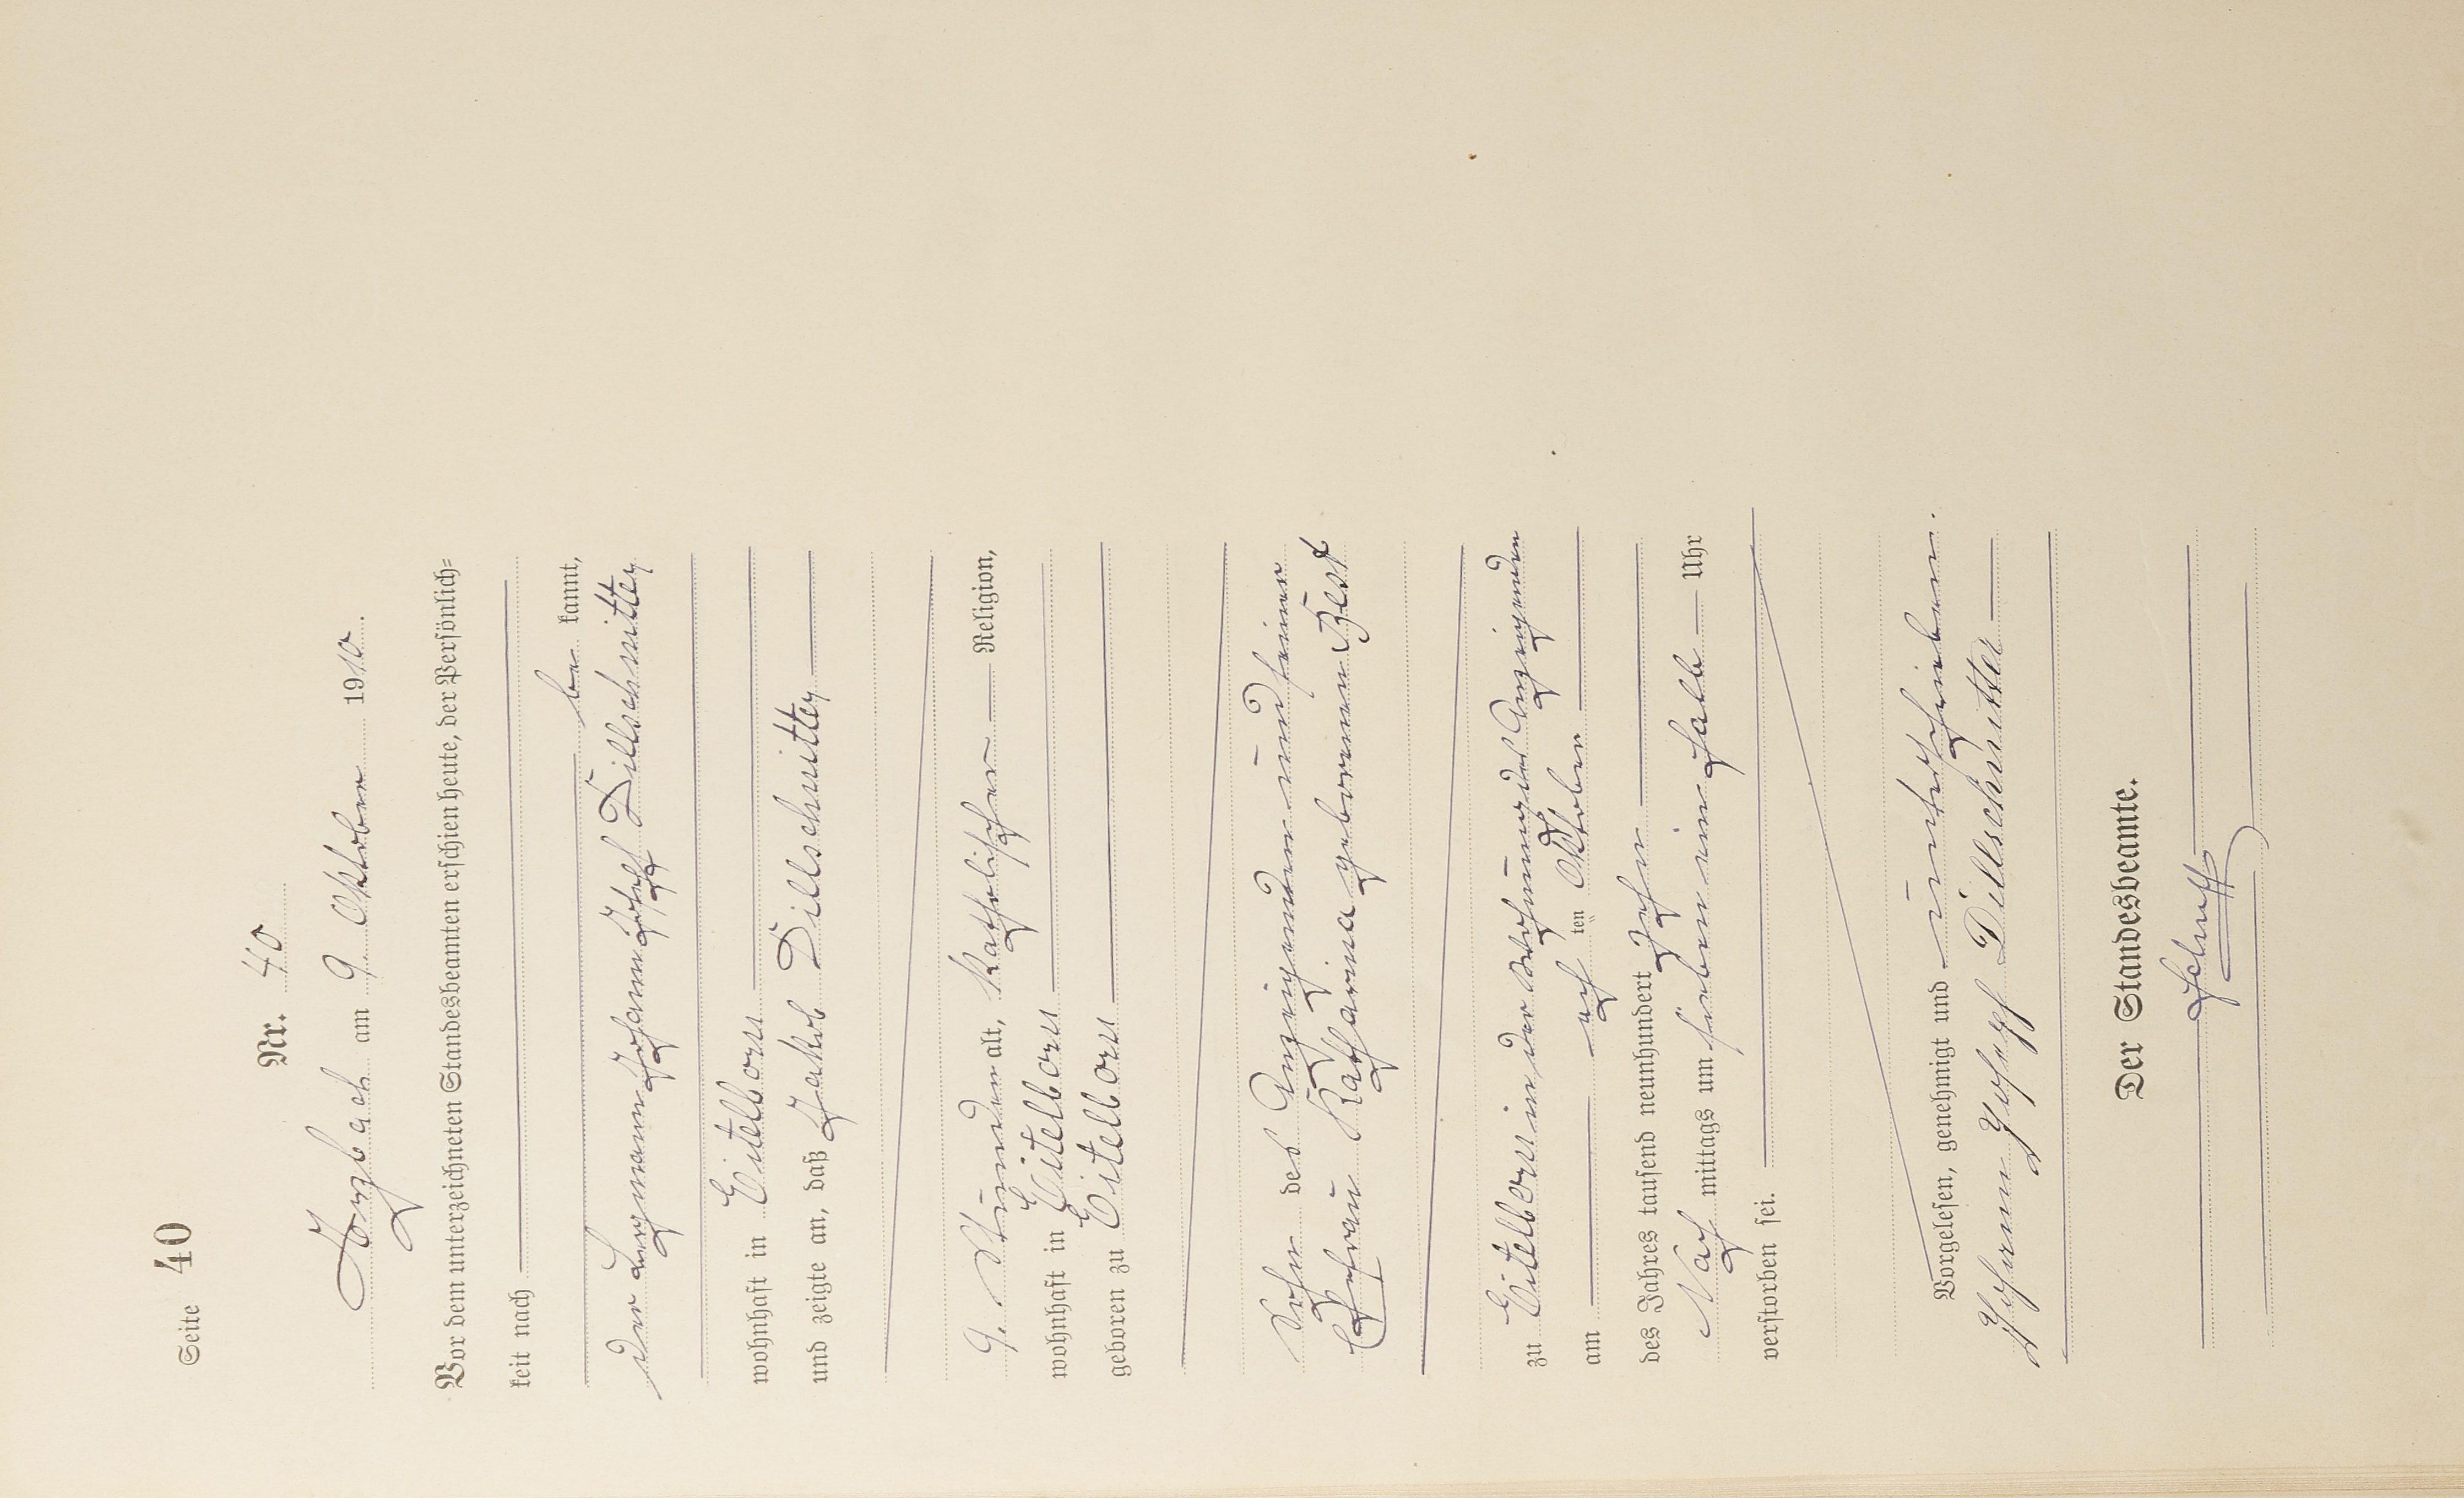 Seite 40
Nr. 40
Arzbach am 9. Oktober 1910.
Vor dem unterzeichneten Standesbeamten erschien heute, der Persönlich=
keit nach
be kannt,
der Bergmann Johann Josef Dillschnitter
wohnhaft in Eitelborn
und zeigte an, daß Jakob Dillschnitter
9. Stunden alt, katholischer Religion,
wohnhaft in Eitelborn
geboren zu Eitelborn
Sohn des Anzeigenden und seiner
Ehefrau Katharina geborenen Best
zu Eitelborn in der Wohnung des Anzeigenden
am acht ten Oktober
des Jahres tausend neunhundert zehn
Nach mittags um sieben ein halb Uhr
verstorben sei.
Vorgelesen, genehmigt und unterschrieben.
Johann Josef Dillschnitter
Der Standesbeamte.